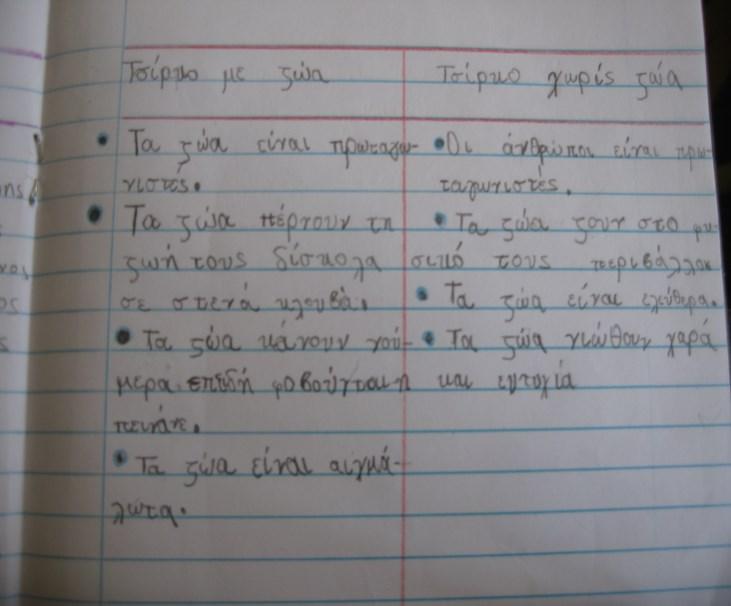 Τσίρκο με ζώα
• Τα ζώα είναι πρωταγω-
νιστές.
• Τα ζώα πέρνουν τη
ζωή τους δίσκολα
σε στενά κλουβιά.
• Τα ζώα κάνουν νού-
μερα επειδή φοβούνται ή
πεινάνε.
• Τα ζώα είναι αιχμά-
λωτα.
Τσίρκο χωρίς ζώα
• Οι άνθρωποι είναι πρω-
ταγωνιστές.
• Τα ζώα ζουν στο φυ-
σικό τους περιβάλλον
• Τα ζώα είναι ελεύθερα.
• Τα ζώα νιώθουν χαρά
και ευτυχία